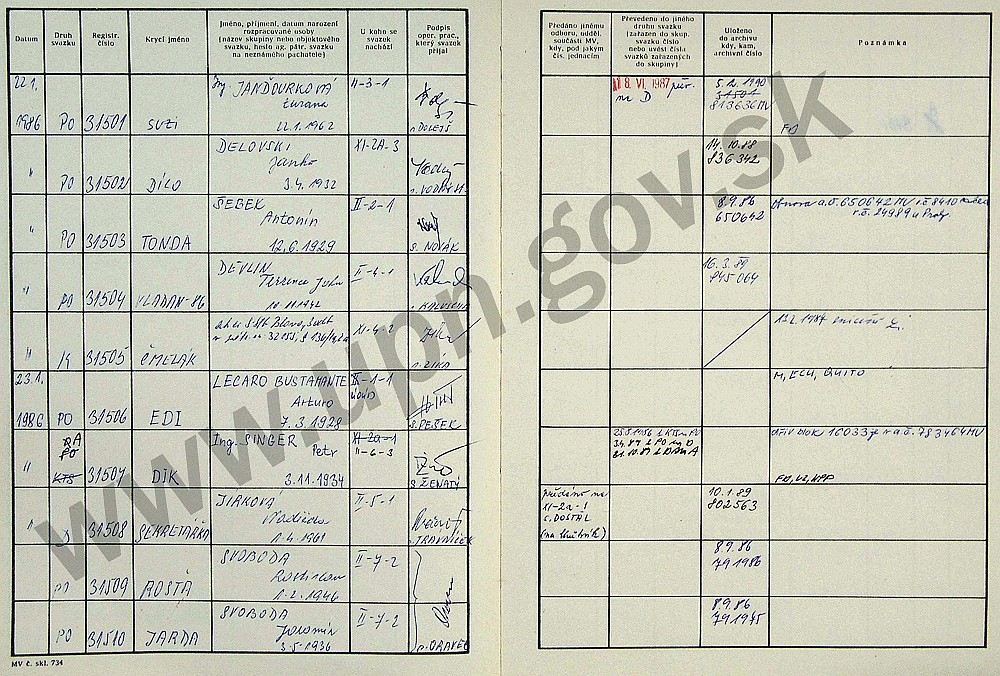 Datum
Druh svazku
Registr. číslo
Krycí jméno
Jméno, příjmení, datum narození
rozpracované osoby
(název skupiny nebo objektového
svazku, heslo ag. pátr. svazku
na neznámého pachatele)
U koho se
svazek
nachází
Podpis
oper. prac.,
který svazek
přijal
Předáno jinému
odboru, odděl.
součásti MV,
kdy, pod jakým
čís. jednacím
Převedeno do jiného
druhu svazku
(zařazen do skup.
svazku číslo
nebo uvést čísla
svazků zařazených
do skupiny)
Uloženo
do archivu
kdy, kam,
archivní číslo
Poznámka
22.1.
1986 PO 31501 SUZI
Ing. JANĎOURKOVÁ
Zuzana
22.1.1962
II-3-1
DOLEJŠ
8. VI. 1987
na D
5.12.1990
31501
813636 MV
" PO 31502 DÍLO
DELOVSKI
Janko
3.4.1932
XI-2A-3
14.10.88
836342
" PO 31503 TONDA
ŠEBEK
Antonín
12.6.1929
II-2-1
S. NOVÁK
8.9.86
650642
Obnova a.č. 650642 MV
" PO 31504 VLADAN-86
DEVLIN
Terrence John
II-4-1
16.3.88
845064
" K 31505 ČMELÁK
XI-4-2
23.1.
1986 PO 31506 EDI
LECARO BUSTAMANTE
Arturo
7.3.1928
S. PEŠEK
M, ECU, QUITO
" PO KTS 31507 DÍK
Ing. SINGER
Petr
3.11.1934
XI-2a-1
II-6-3
S. ŽENATÝ
dřív blok 16033 je na a.č. 783464 MV
" 31508 SEKRETÁŘKA
JIRKOVÁ
Naděžda
1.4.1961
II-5-1
TRÁVNÍČEK
předáno na
XI-2a-1
S. DOSTÁL
10.1.89
802563
PO 31509 ROSŤA
SVOBODA
Rostislav
1.2.1946
II-7-2
8.9.86
791986
PO 31510 JARDA
SVOBODA
Jaromír
3.5.1936
II-7-2
ORAVEC
8.9.86
791975
MV č. skl. 734
www.upn.gov.sk